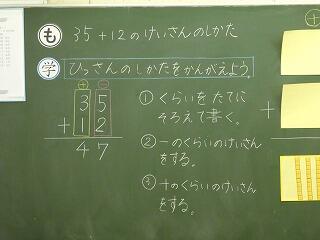 も 35+12のけいさんのしかた
学 ひっさんのしかたをかんがえよう。
十 一
35
+12
47
① くらいをたてに
そろえて書く。
② 一のくらいのけいさん
をする。
③ 十のくらいのけいさん
をする。
十
+